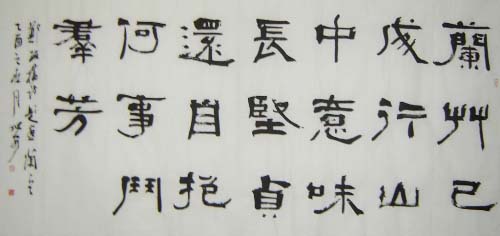 蘭艸已
成行山
中意味
長堅貞
還自抱
何事鬥
羣芳
鄭板橋詩
乙酉